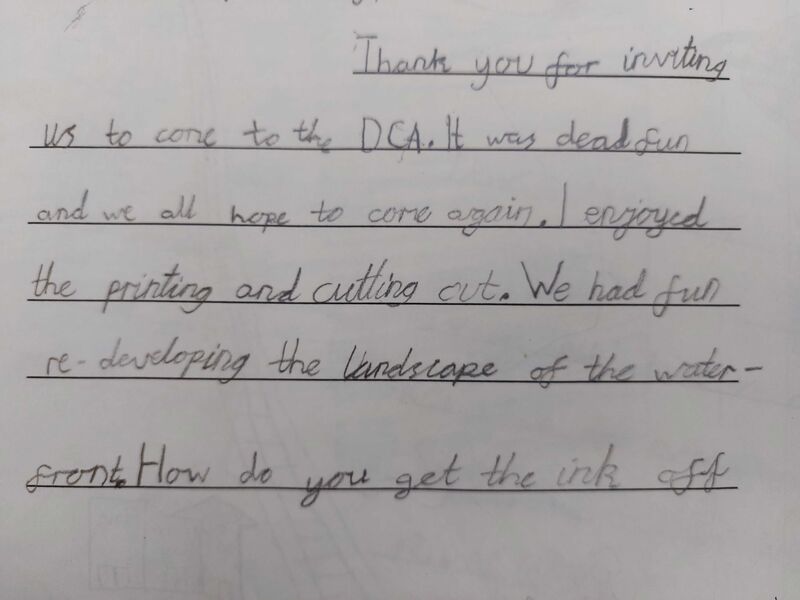 Thank you for inviting
us to come to the DCA. It was dead fun
and we all hope to come again. I enjoyed
the printing and cutting out. We had fun
re-developing the landscape of the water-
front. How do you get the ink off